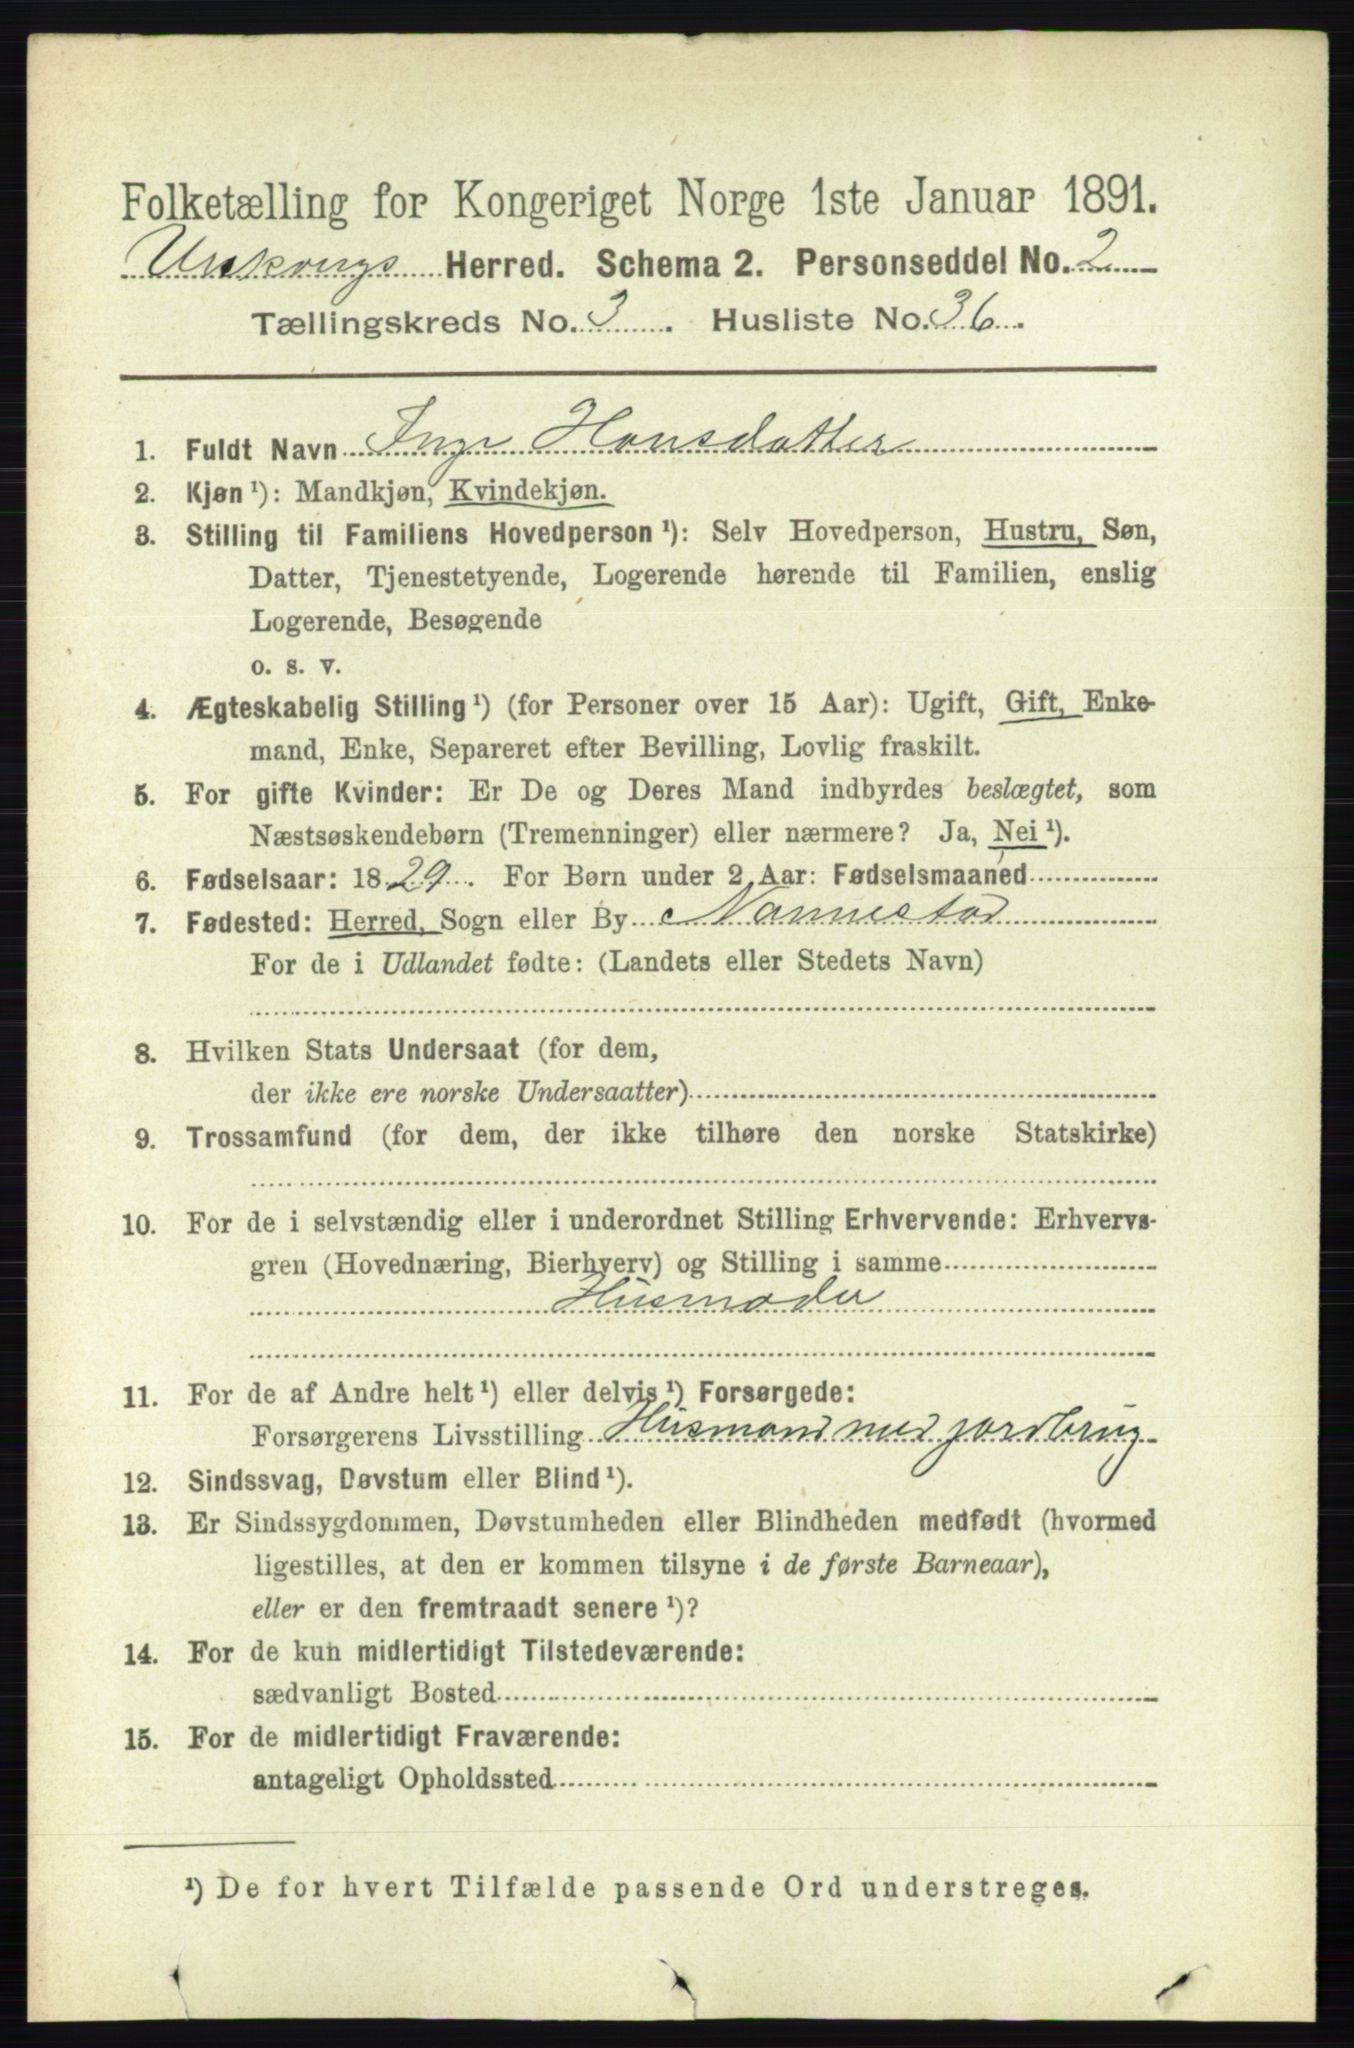 Folketælling for Kongeriget Norge 1ste Januar 1891.
Urskougs Herred. Schema 2. Personseddel No. 2
Tællingskreds No. 3. Husliste No. 36.
1. Fuldt Navn Inge Hansdatter
2. Kjøn ¹): Mandkjøn, Kvindekjøn.
3. Stilling til Familiens Hovedperson ¹): Selv Hovedperson, Hustru, Søn,
Datter, Tjenestetyende, Logerende hørende til Familien, enslig
Logerende, Besøgende
o. s. v.
4. Ægteskabelig Stilling ¹) (for Personer over 15 Aar): Ugift, Gift, Enke-
mand, Enke, Separeret efter Bevilling, Lovlig fraskilt.
5. For gifte Kvinder: Er De og Deres Mand indbyrdes beslægtet, som
Næstsøskendebørn (Tremenninger) eller nærmere? Ja, Nei ¹).
6. Fødselsaar: 1829. For Børn under 2 Aar: Fødselsmaaned
7. Fødested: Herred, Sogn eller By Nannestad
For de i Udlandet fødte: (Landets eller Stedets Navn)
8. Hvilken Stats Undersaat (for dem,
der ikke ere norske Undersaatter)
9. Trossamfund (for dem, der ikke tilhøre den norske Statskirke)
10. For de i selvstændig eller i underordnet Stilling Erhvervende: Erhvervs-
gren (Hovednæring, Bierhverv) og Stilling i samme
Husmoder
11. For de af Andre helt ¹) eller delvis ¹) Forsørgede:
Forsørgerens Livsstilling Husmand med jordbrug
12. Sindssvag, Døvstum eller Blind ¹).
13. Er Sindssygdommen, Døvstumheden eller Blindheden medfødt (hvormed
ligestilles, at den er kommen tilsyne i de første Barneaar),
eller er den fremtraadt senere ¹)?
14. For de kun midlertidigt Tilstedeværende:
sædvanligt Bosted
15. For de midlertidigt Fraværende:
antageligt Opholdssted
¹) De for hvert Tilfælde passende Ord understreges.